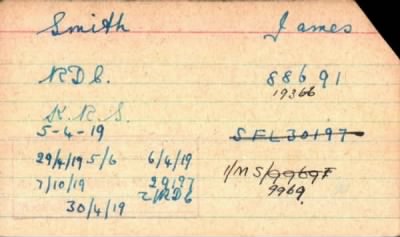 Smith James
RDC. 88691
19366
K.R.S.
5-4-19 SFL30197
29/4/19 5/6 6/4/19 1/MS/9969F
7/10/19 29197 9969
30/4/19 2/RDC